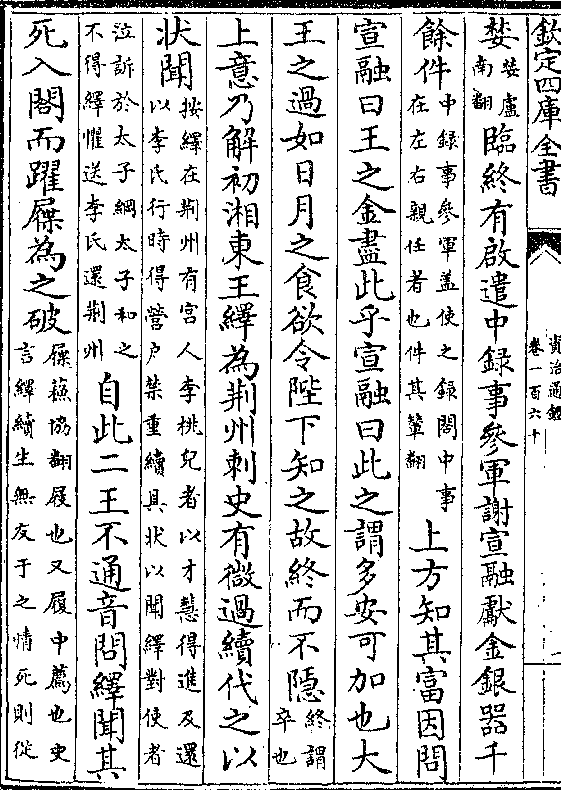 欽定四庫全書
資治通鑑
卷一百六十
婪婪盧南翻臨終有啟遣中録事參軍謝宣融獻金銀器千
餘件中録事參軍盖使之録閤中事在左右親任者也件其輦翻上方知其富因問
宣融曰王之金盡此乎宣融曰此之謂多安可加也大
王之過如日月之食欲令陛下知之故終而不隱終謂卒也
上意乃解初湘東王繹為荆州刺史有微過續代之以
狀聞按繹在荆州有宫人李桃兒者以才慧得進及還以李氏行時得營户禁重續具狀以聞繹對使者
泣訴於太子綱太子和之不得繹懼送李氏還荆州自此二王不通音問繹聞其
死入閤而躍屧為之破屧蘇協翻屐也又履中薦也史言繹續生無友于之情死則從